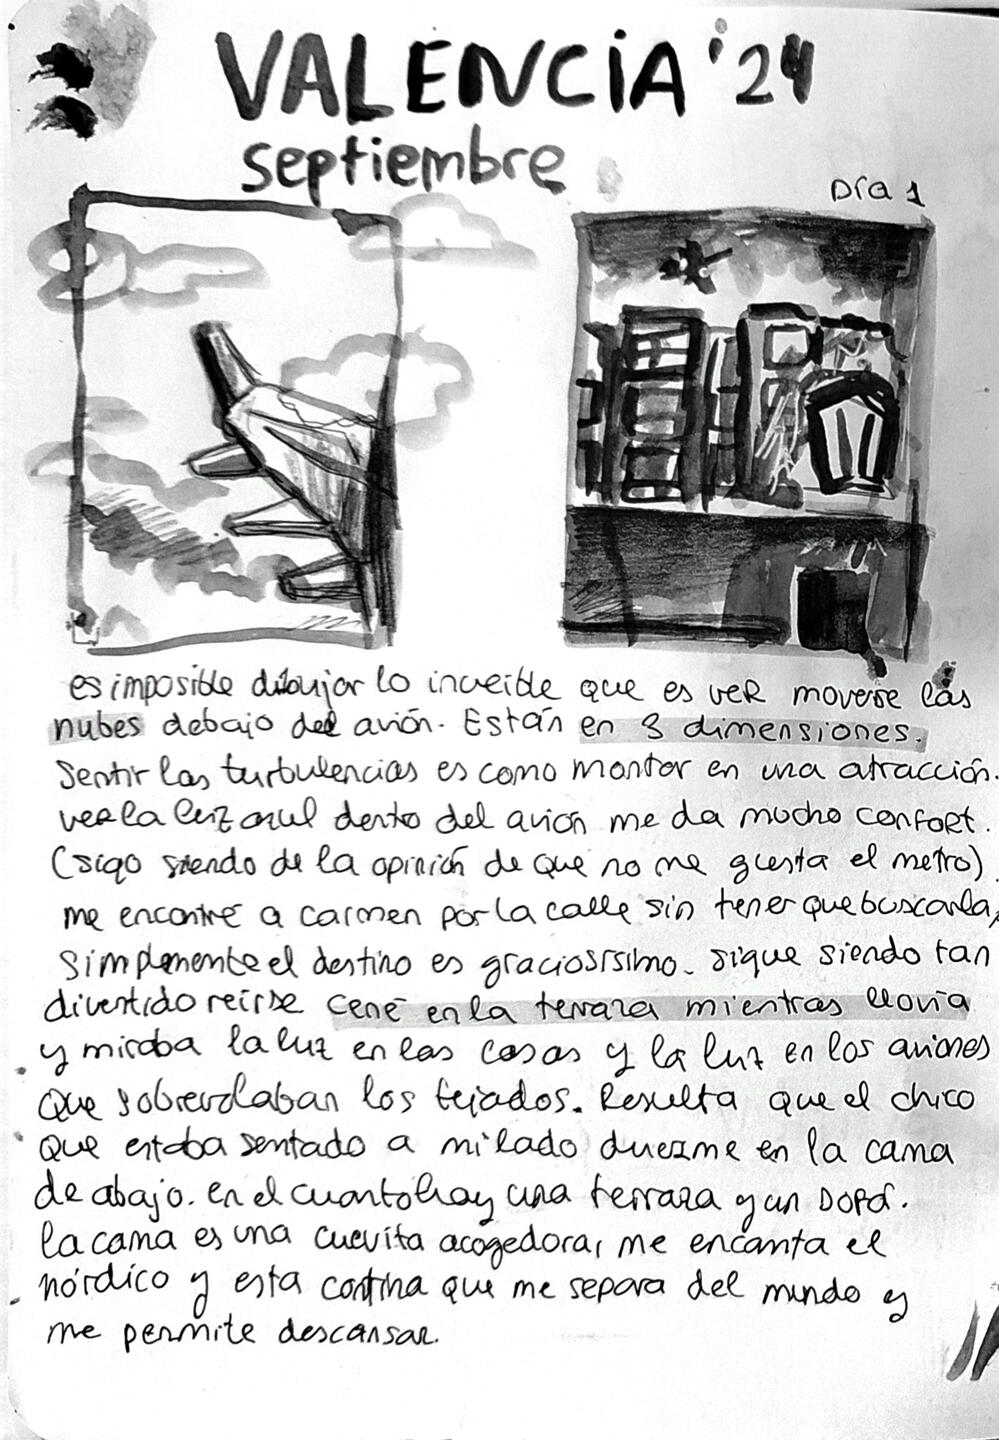 VALENCIA '24
septiembre
Día 1
es imposible dibujar lo increible que es ver moverse las
nubes debajo del avión. Están en 3 dimensiones.
Sentir las turbulencias es como montar en una atracción.
ver la luz azul dentro del avión me da mucho confort.
(sigo siendo de la opinión de que no me gusta el metro).
me encontré a carmen por la calle sin tener que buscarla,
simplemente el destino es graciosísimo. sigue siendo tan
divertido reírse cené en la terraza mientras llovía
y miraba la luz en las casas y la luz en los aviones
que sobrevolaban los tejados. Resulta que el chico
que estaba sentado a mi lado duerme en la cama
de abajo. en el cuarto hay una terraza y un sofá.
la cama es una cuevita acogedora, me encanta el
nórdico y esta cortina que me separa del mundo y
me permite descansar.